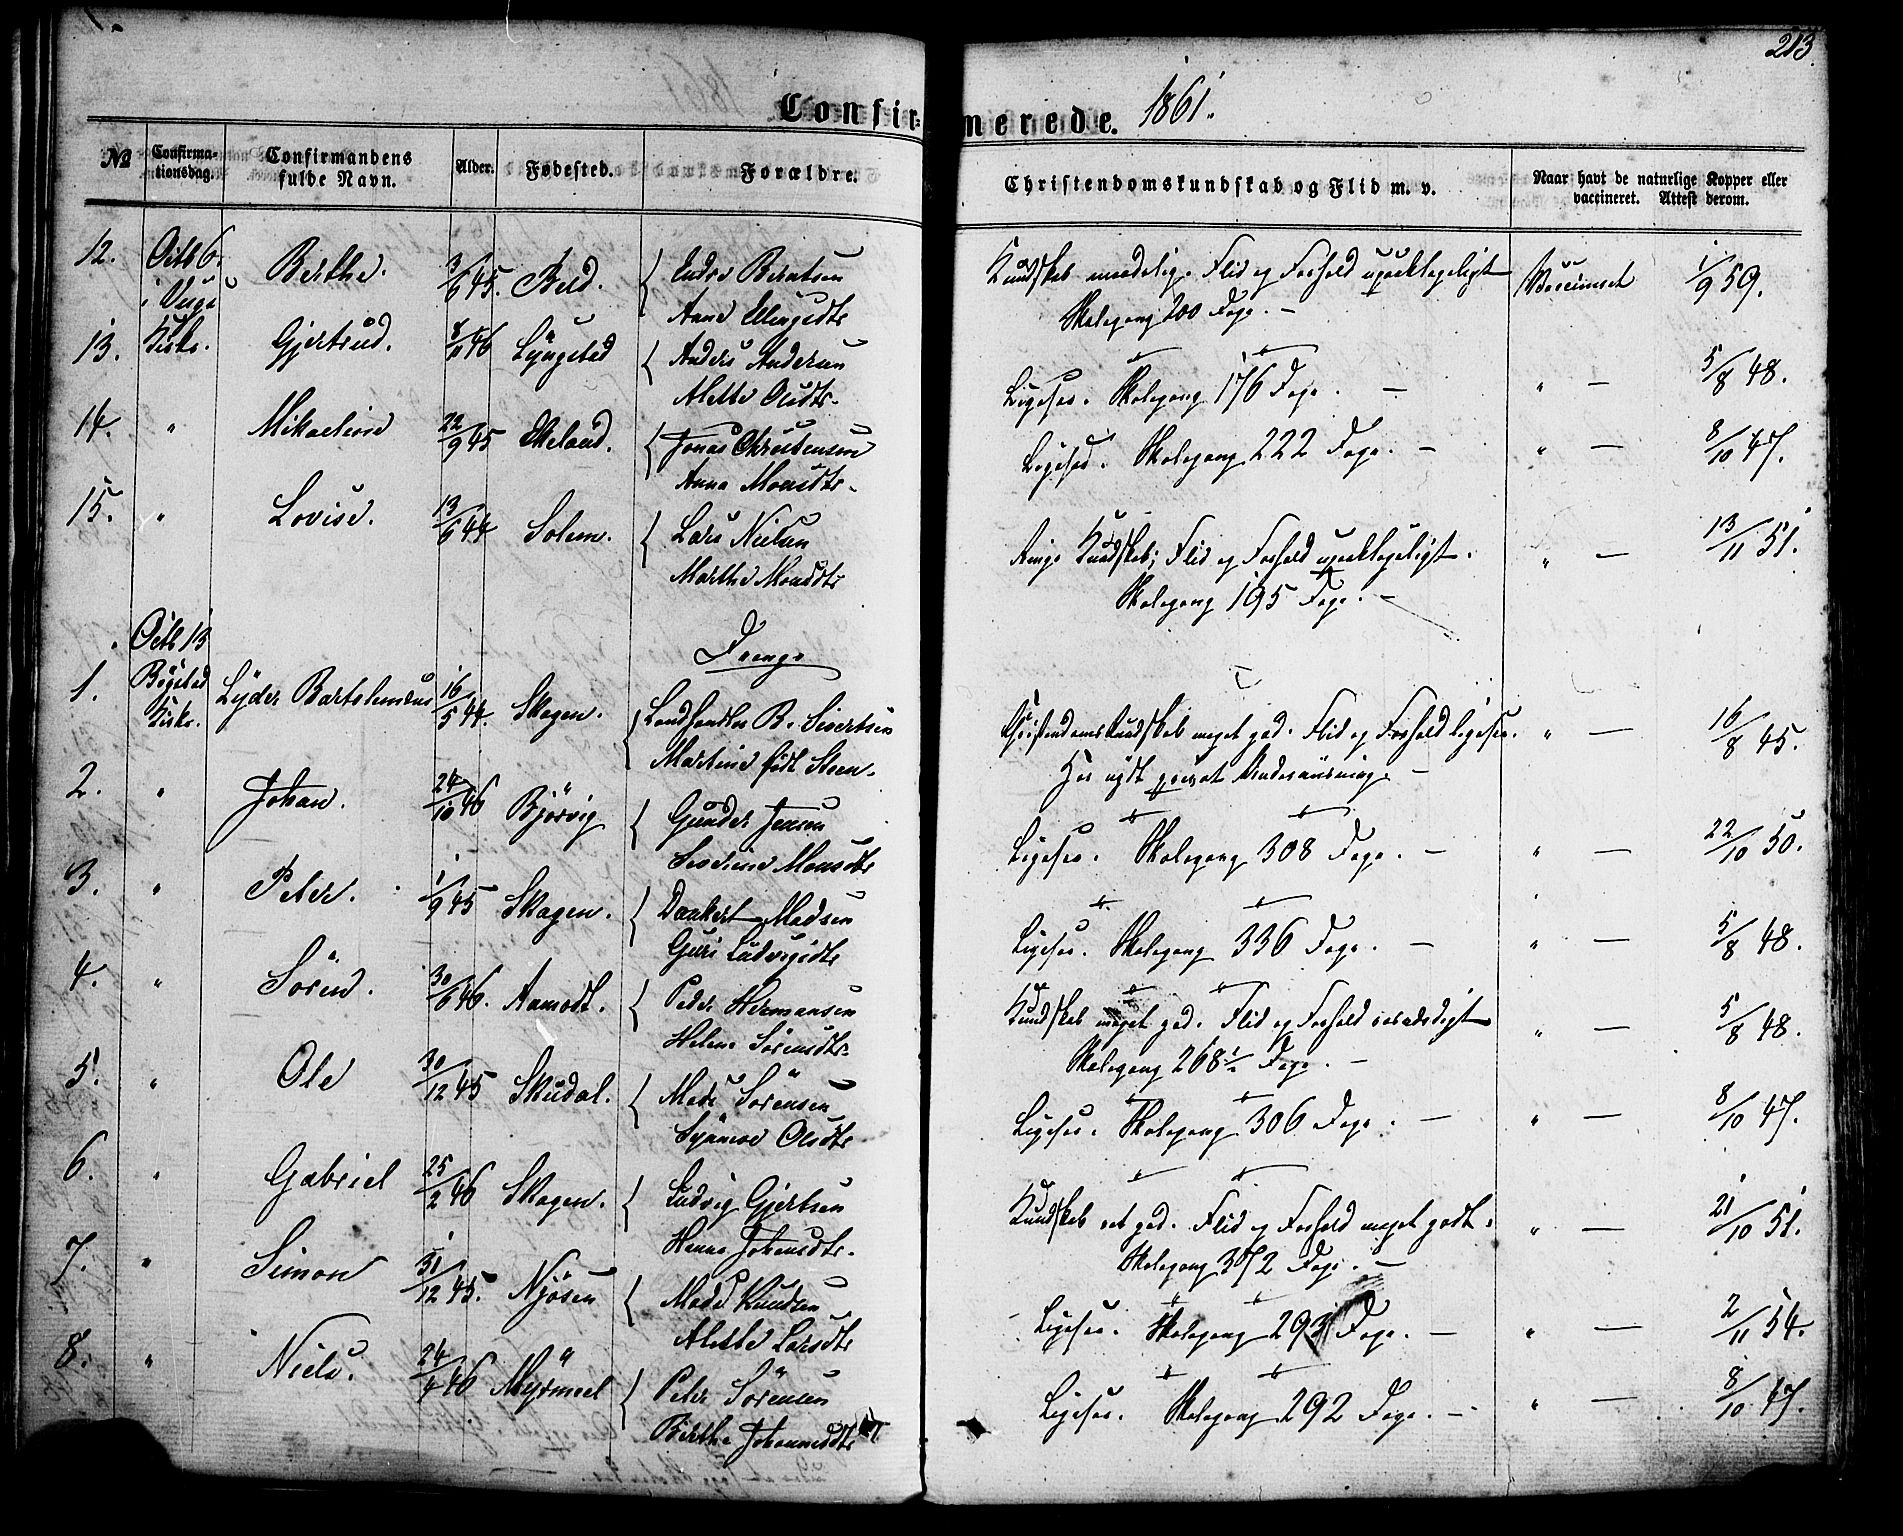 213.
Confirmerede. 1861.
№ Confirmationsdag. Confirmandens fulde Navn. Alder. Fødested. Forældre. Christendomskundskab og Flid m. v. Naar havt de naturlige Kopper eller vaccineret. Attest derom.
12. Octb 6. Berthe. 3/6 45.
Kundskab maadelig. Flid og Forhold upaaklageligt Vaccineret 1/9 59.
i
Anne
Skolegang 200 Dage. —
13. Kirke. Gjertrud. 46 Lyngstad Anders Andersen
Ligesaa. Skolegang 176 Dage. — " — 5/8 48.
Alette Olsdtr.
14. " Mikaeline 22/9 45 Ekeland. Jonas Christensen
Ligesaa. Skolegang 222 Dage. — " — 8/10 47.
Anna Monsdtr.
15. " Lovise. 13/6 44 Solem. Lars Nielsen
Ringe Kundskab; Flid og Forhold upaaklageligt. " — 13/11 51.
Marthe Monsdtr
Skolegang 195 Dage. —
Octb 13
Drenge
1. Bögstad Kirke. Lyder Bartolemæus 16/5 44. Skagen. Landhandler B. Sivertsen
Christendomskundskab meget god. Flid og Forhold ligesaa. " — 16/8 45.
Martine født Steen.
Har nydt privat Underviisning. —
2. " Johan. 24/10 46 Bjørvig Gunder Jensen
Ligesaa. Skolegang 308 Dage. — " — 22/10 50.
Severine Monsdtr
3. " Peter. 1/9 45 Skagen. Dankert Madsen
Ligesaa. Skolegang 336 Dage. — " — 5/8 48.
Guri Ludvigsdtr
4. " Sören. 30/6 46. Aamodt. Peder Hermansen
Kundskab meget god. Flid og Forhold roesværdigt " — 5/8 48.
Helene Sörensdtr.
Skolegang 268 ½ Dage. —
5. " Ole 30/12 45 Skudal. Mads Sörensen
Ligesaa. Skolegang 306 Dage. — " — 8/10 47.
Synneve Olsdtr
6. " Gabriel 25/2 46 Skagen. Ludvig Gjertsen
Kundskab ret god. Flid og Forhold meget godt. " — 21/10 51.
Hanna Johansdtr.
Skolegang 372 Dage. —
7. " Simon 31/12 45. Njøsen Mads Knudsen
Ligesaa. Skolegang 293 Dage. — " — 2/11 54.
Alette Larsdtr
8. " Niels. 24/4 46 Myrmeel Peter Sörensen
Ligesaa. Skolegang 292 Dage. — " — 8/10 47.
Birthe Johannesdtr